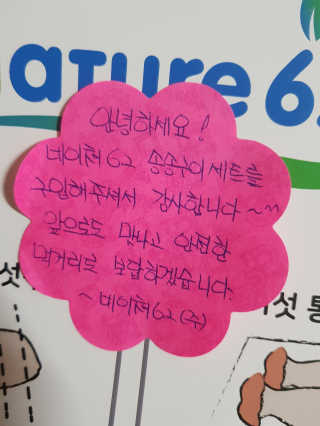 nature 6
안녕하세요!
네이쳐62 송송구이세트를
구입해주셔서 감사합니다~^^
앞으로도 맛나고 안전한
먹거리로 보답하겠습니다.
~ 네이쳐62 (주)
섯
버섯 통